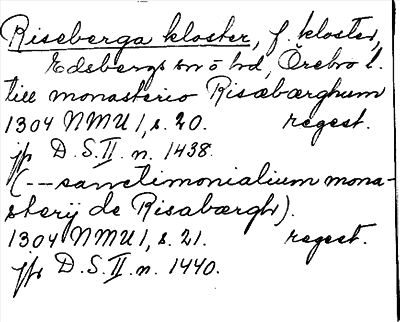 Riseberga kloster, f. kloster,
Edsbergs sn o hd, Örebro l.
till monasterio Risæbærghum
1304 NMU 1, s. 20. regest.
jfr D.S. II. n. 1438.
(-- sanctimonialium mona-
sterij de Risabærgh).
1304 NMU 1, s. 21. regest.
jfr D.S. II. n. 1440.